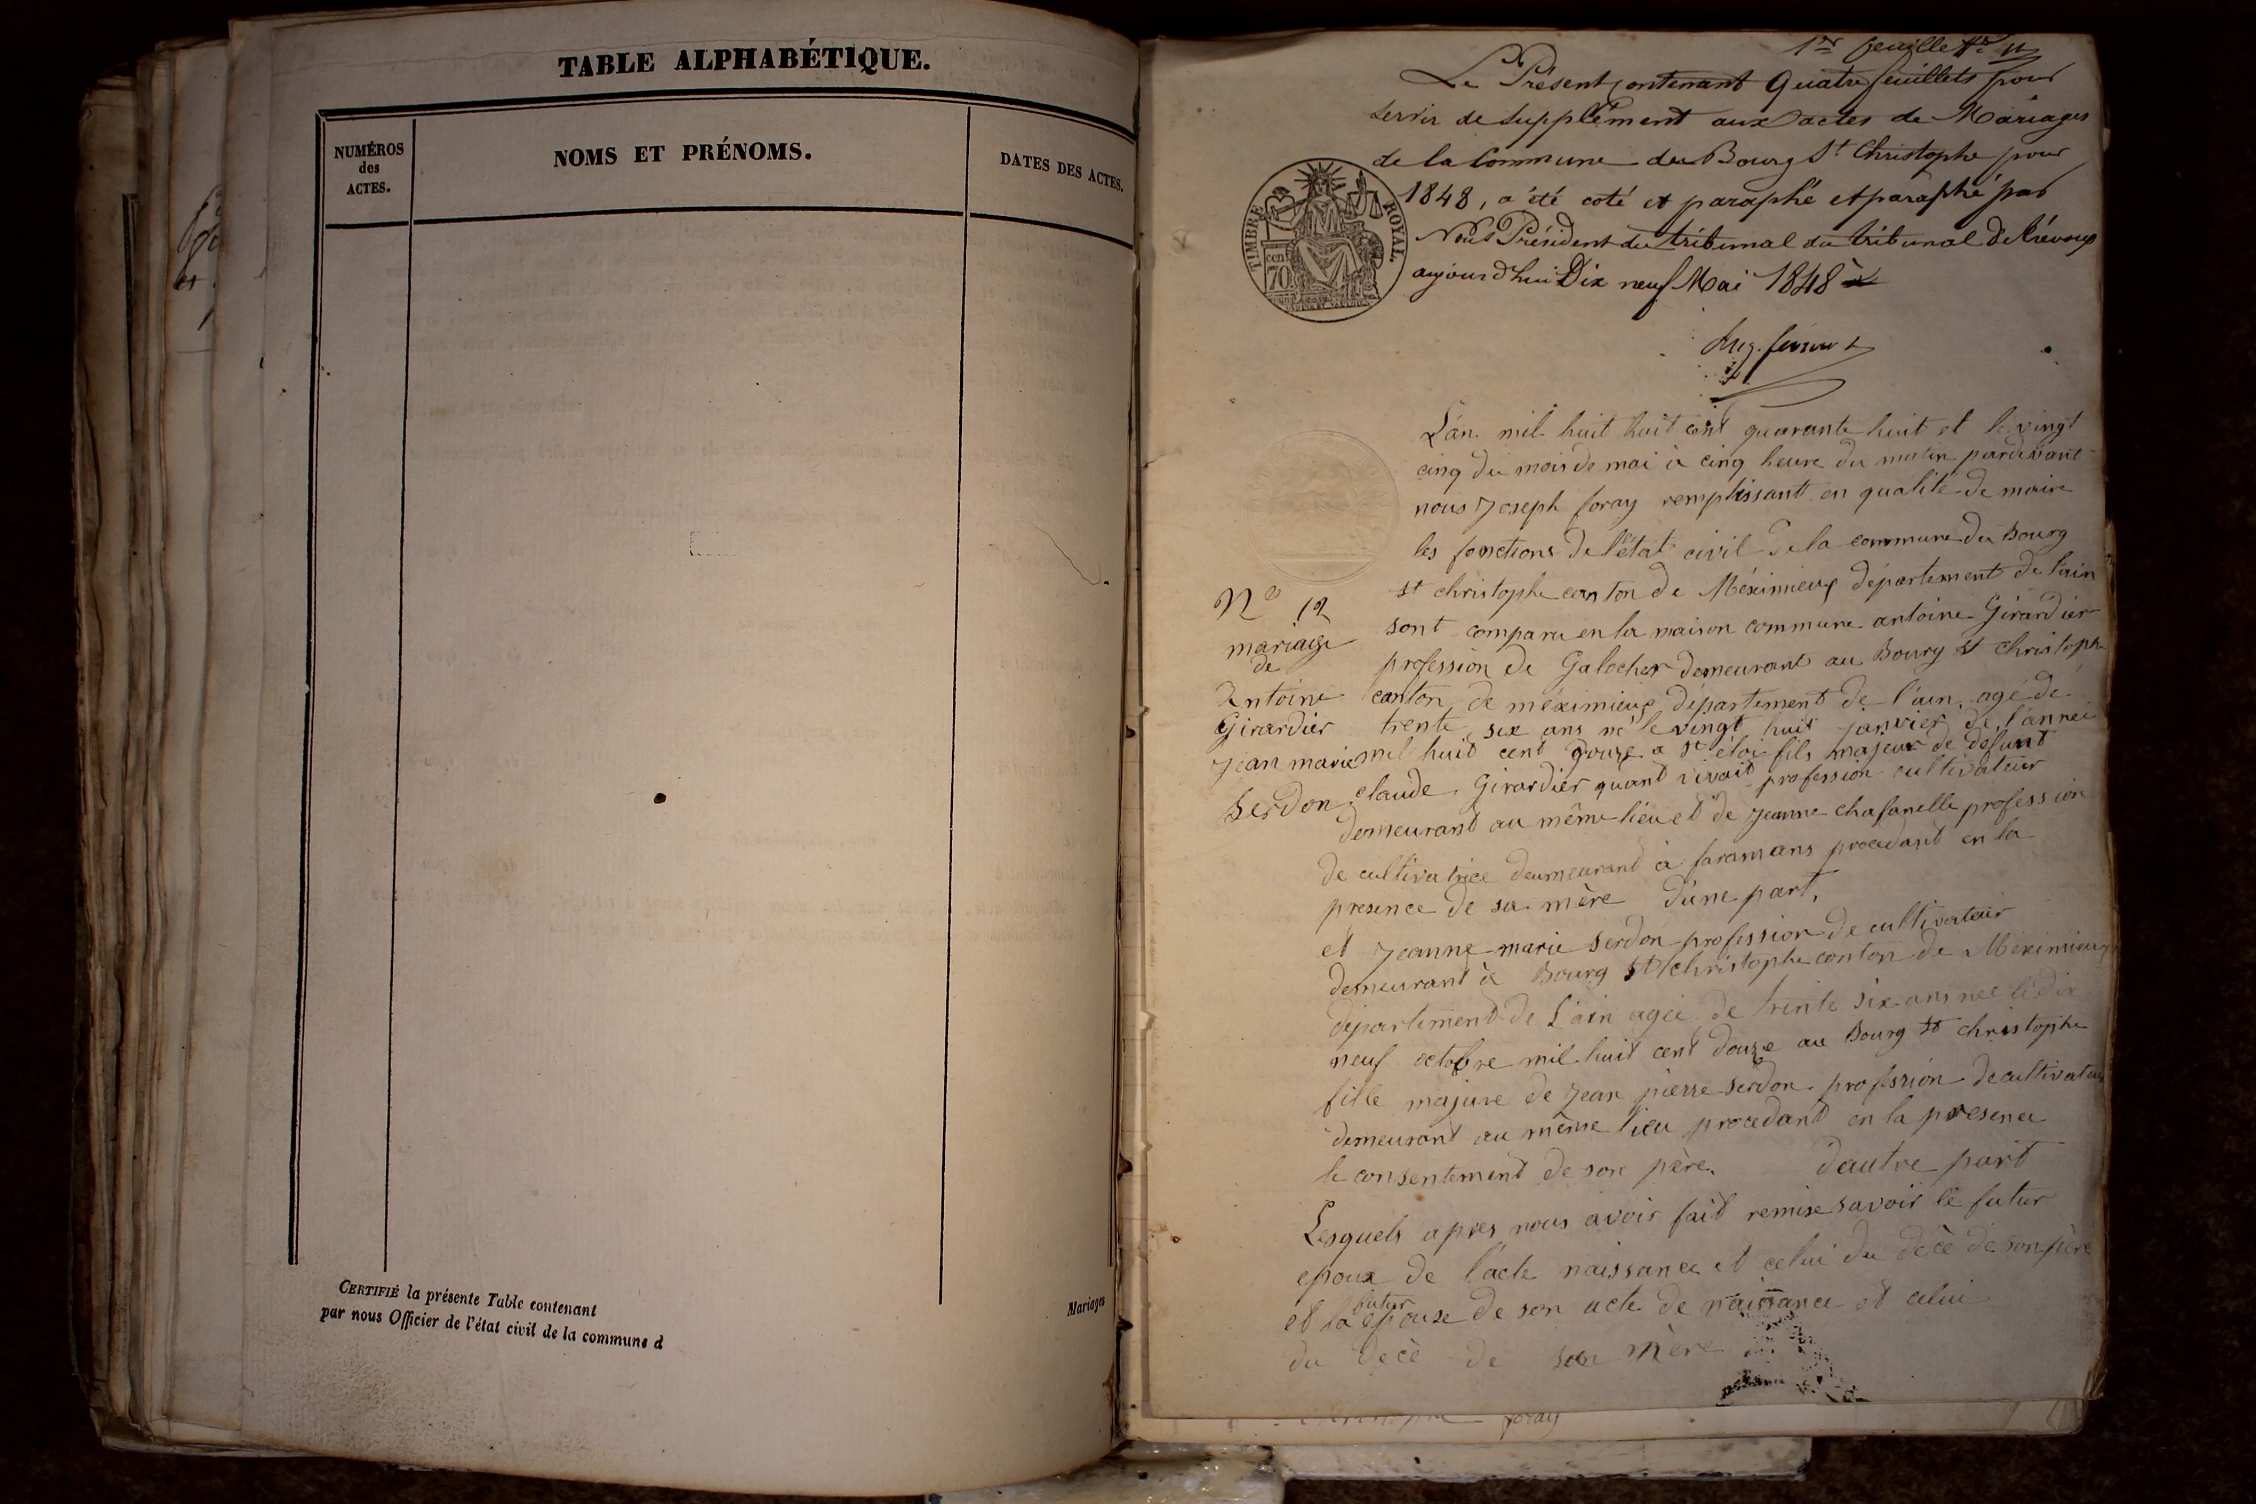 TABLE ALPHABÉTIQUE.
NUMÉROS
des
ACTES.
NOMS ET PRÉNOMS.
DATES DES ACTES.
CERTIFIÉ la présente Table contenant
par nous Officier de l'état civil de la commune d
Mariages
1er feuillet
Le Présent contenant Quatre feuillets pour
servir de supplément aux actes de Mariages
de la Commune du Bourg St Christophe pour
1848, a été coté et paraphé et paraphé par
Nous Président du tribunal du tribunal De Trévoux
aujourd'hui Dix neuf Mai 1848
TIMBRE ROYAL
70 cen
L'an mil huit huit cent quarante huit et le vingt
cinq du mois de mai à cinq heure du matin pardevant
nous Joseph foray remplissant en qualité de maire
les fonctions de l'état civil de la commune du Bourg
st christophe canton de Méximieux département de l'ain
sont comparu en la maison commune antoine Girardier
profession de Galocher demeurant au Bourg st christophe
canton de méximieux département de l'ain agé de
trente six ans né le vingt huit janvier de l'année
mil huit cent douze a st éloi fils majeur de défunt
claude Girardier quant vivait profession cultivateur
demeurant au même lieu et de jeanne chafanelle profession
de cultivatrice deumeurant à faramans procedant en la
presence de sa mère d'une part,
et jeanne marie serdon profession de cultivateur
demeurant à Bourg st christophe conton de Méximieux
département de L'ain agée de trente six ans nee le dix
neuf octobre mil huit cent douze au Bourg st christophe
fille majure de jean pierre serdon profession de cultivateur
demeurant au même lieu procedant en la presence
le consentement de son père. d'autre part
Lesquels apres nous avoir fait remise savoir le futur
epoux de l'acte naissance et celui du décè de son père
et la futur epouse de son acte de naissance et celui
du décè de sa mère
N° 12
mariage
de
Antoine
Girardier
jean marie
Serdon
foray